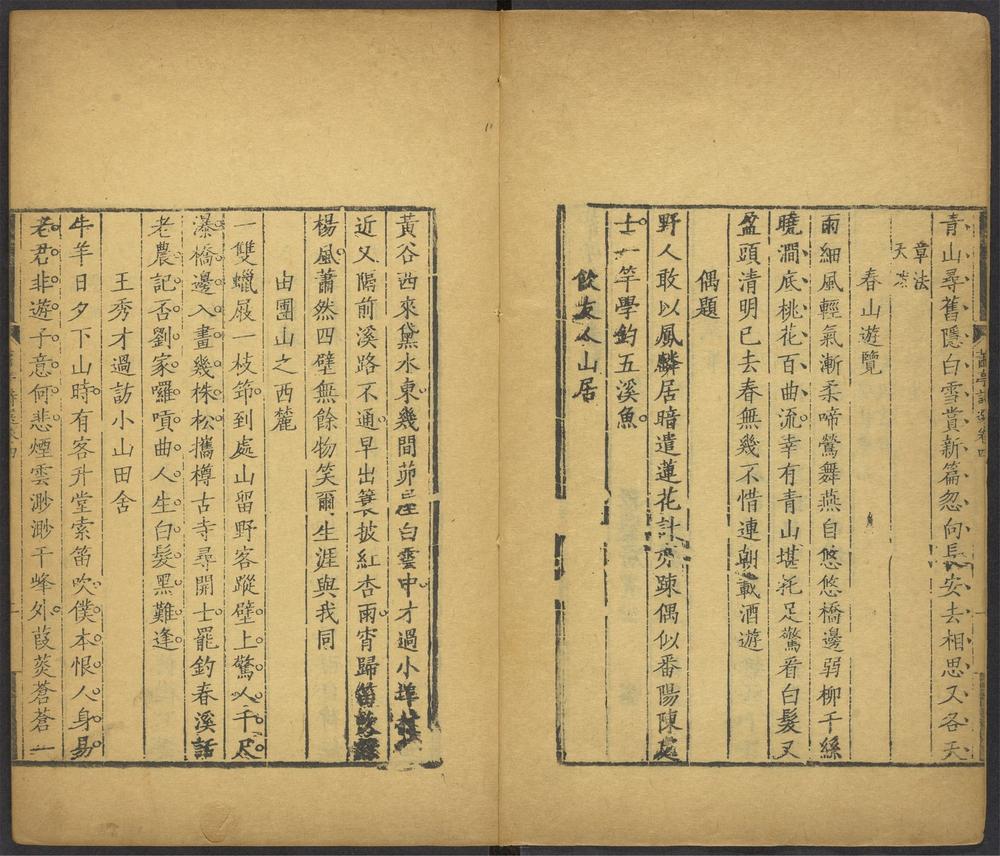 青山尋舊隱白雪賞新篇忽向長安去相思又各天
章法
天然
春山遊覽
雨細風輕氣漸柔啼鶯舞燕自悠悠橋邊弱柳千絲
曉澗底桃花百曲流幸有青山堪托足驚看白髮又
盈頭清明已去春無幾不惜連朝載酒遊
偶題
野人敢以鳳麟居暗遣蓮花計亦踈偶似番陽陳處
士一竿學釣五溪魚
飲友人山居
黃谷西來黛水東幾間茆屋白雲中才過小埠
近又隔前溪路不通早出簑披紅杏雨宵歸笛
楊風蕭然四壁無餘物笑爾生涯與我同
由團山之西麓
一雙蠟屐一枝筇到處山留野客蹤壁上驚人千尺
瀑橋邊入畫幾株松攜樽古寺尋開士罷釣春溪話
老農記否劉家囉嗊曲人生白髮黑難逢
王秀才過訪小山田舍
牛羊日夕下山時有客升堂索笛吹僕本恨人身易
老君非遊子意何悲煙雲渺渺千峰外葭菼蒼蒼一